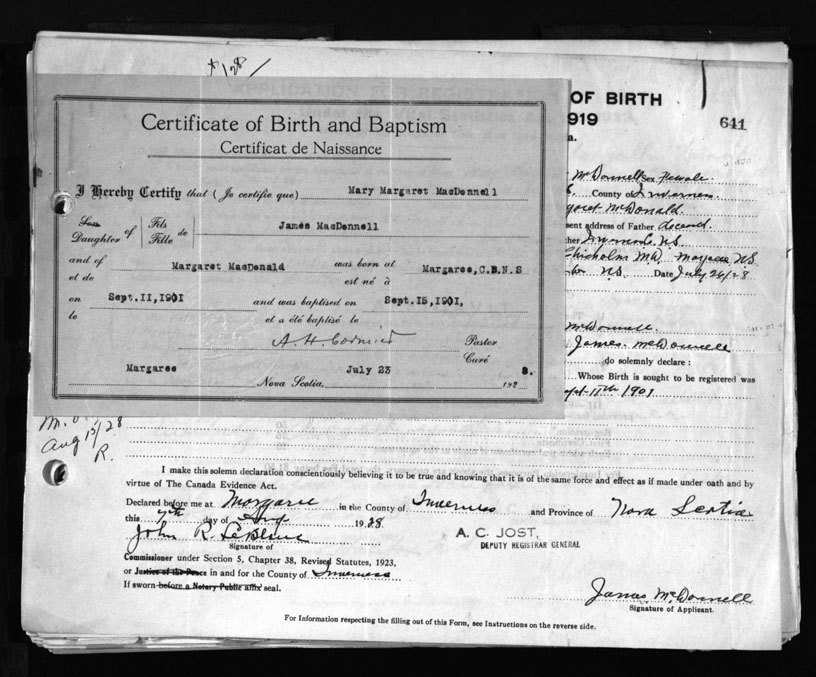 OF BIRTH
919
641
Certificate of Birth and Baptism
Certificat de Naissance
I Hereby Certify that (Je certifie que) Mary Margaret MacDonnell
Son
Daughter of Fils
Fille de James MacDonnell
and of
et de Margaret MacDonald was born at
est né à Margaree, C.B.N.S
on
le Sept.11,1901 and was baptised on
et a été baptisé le Sept.15,1901,
A. H. Cormier Pastor
Curé
Margaree July 23 192 8.
Nova Scotia,
McDonnell Sex Female
County of Inverness
garet McDonald
sent address of Father deceased
ther Inverness N.S.
Chisholm M.D. Margaree N.S.
N.S. Date July 26/28
McDonnell
James McDonnell
do solemnly declare :
Whose Birth is sought to be registered was
Sept 11th 1901
Aug 15/28
R.
I make this solemn declaration conscientiously believing it to be true and knowing that it is of the same force and effect as if made under oath and by
virtue of The Canada Evidence Act.
Declared before me at Margaree in the County of Inverness and Province of Nova Scotia
this 7th day of Aug 1928
A. C. JOST,
DEPUTY REGISTRAR GENERAL
John R. LeBlanc
Signature of
Commissioner under Section 5, Chapter 38, Revised Statutes, 1923,
or Justice of the Peace in and for the County of Inverness
If sworn before a Notary Public affix seal.
James McDonnell
Signature of Applicant.
For Information respecting the filling out of this Form, see Instructions on the reverse side.